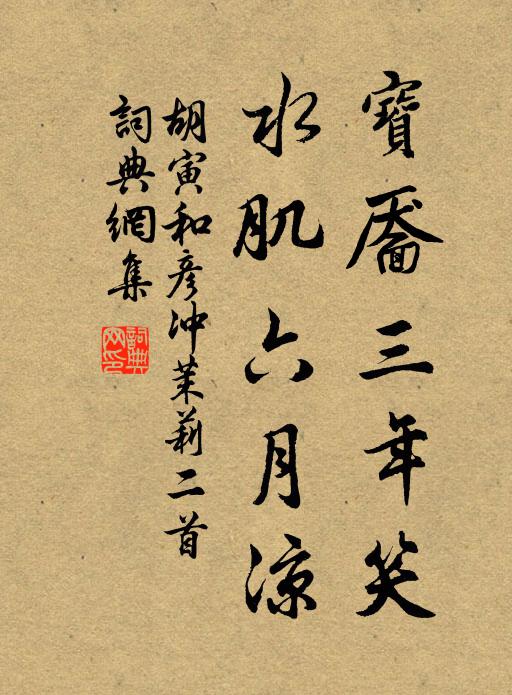 寶靨三年笑
水肌六月涼
胡寅和彥沖茉莉二首
詞典網集
詞典网印